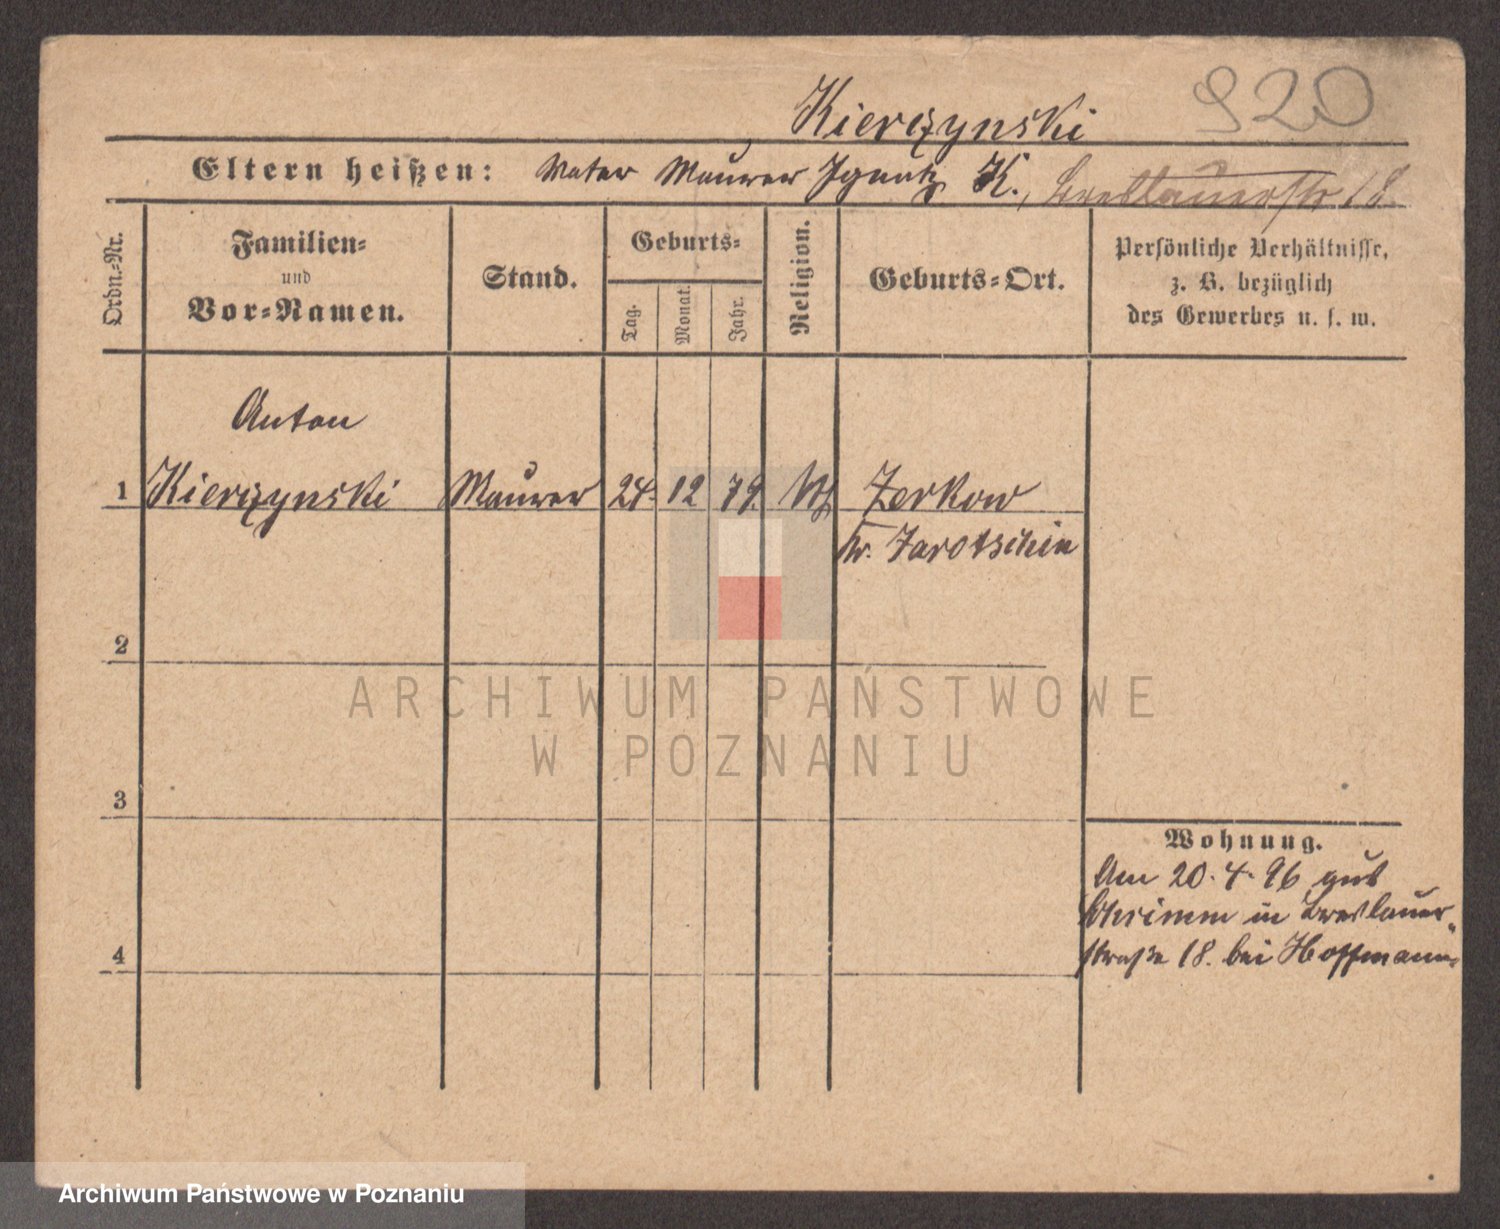 Kierczynski
920
Eltern heißen: Vater Maurer Ignatz K., Breslauerstr 18.
Ordn.-Nr.
Familien-
und
Vor-Namen.
Stand.
Geburts-
Tag.
Monat.
Jahr.
Religion.
Geburts-Ort.
Persönliche Verhältnisse,
z. B. bezüglich
des Gewerbes u. s. w.
Anton
1 Kierczynski Maurer 24. 12 79. Zerkow
Kr. Jarotschin
2
ARCHIWUM PAŃSTWOWE
W POZNANIU
3
Wohnung.
Am 20. 4. 96 aus
Schrimm in Breslauer-
straße 18. bei Hoffmann.
4
Archiwum Państwowe w Poznaniu